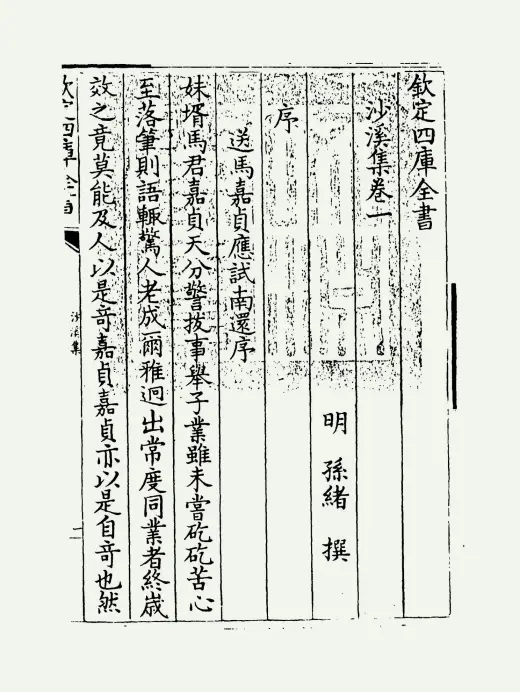 欽定四庫全書
沙溪集卷一
明 孫緒 撰
序
送馬嘉貞應試南還序
妹壻馬君嘉貞天分警拔事舉子業雖未嘗矻矻苦心
至落筆則語輒驚人老成爾雅迥出常度同業者終歲
效之竟莫能及人以是竒嘉貞嘉貞亦以是自竒也然
欽定四庫全書
沙溪集